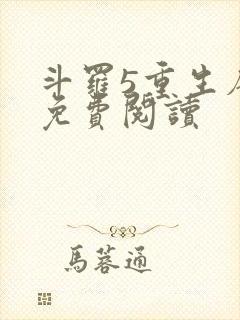 斗羅5重生
免費閱讀
馬蓉通